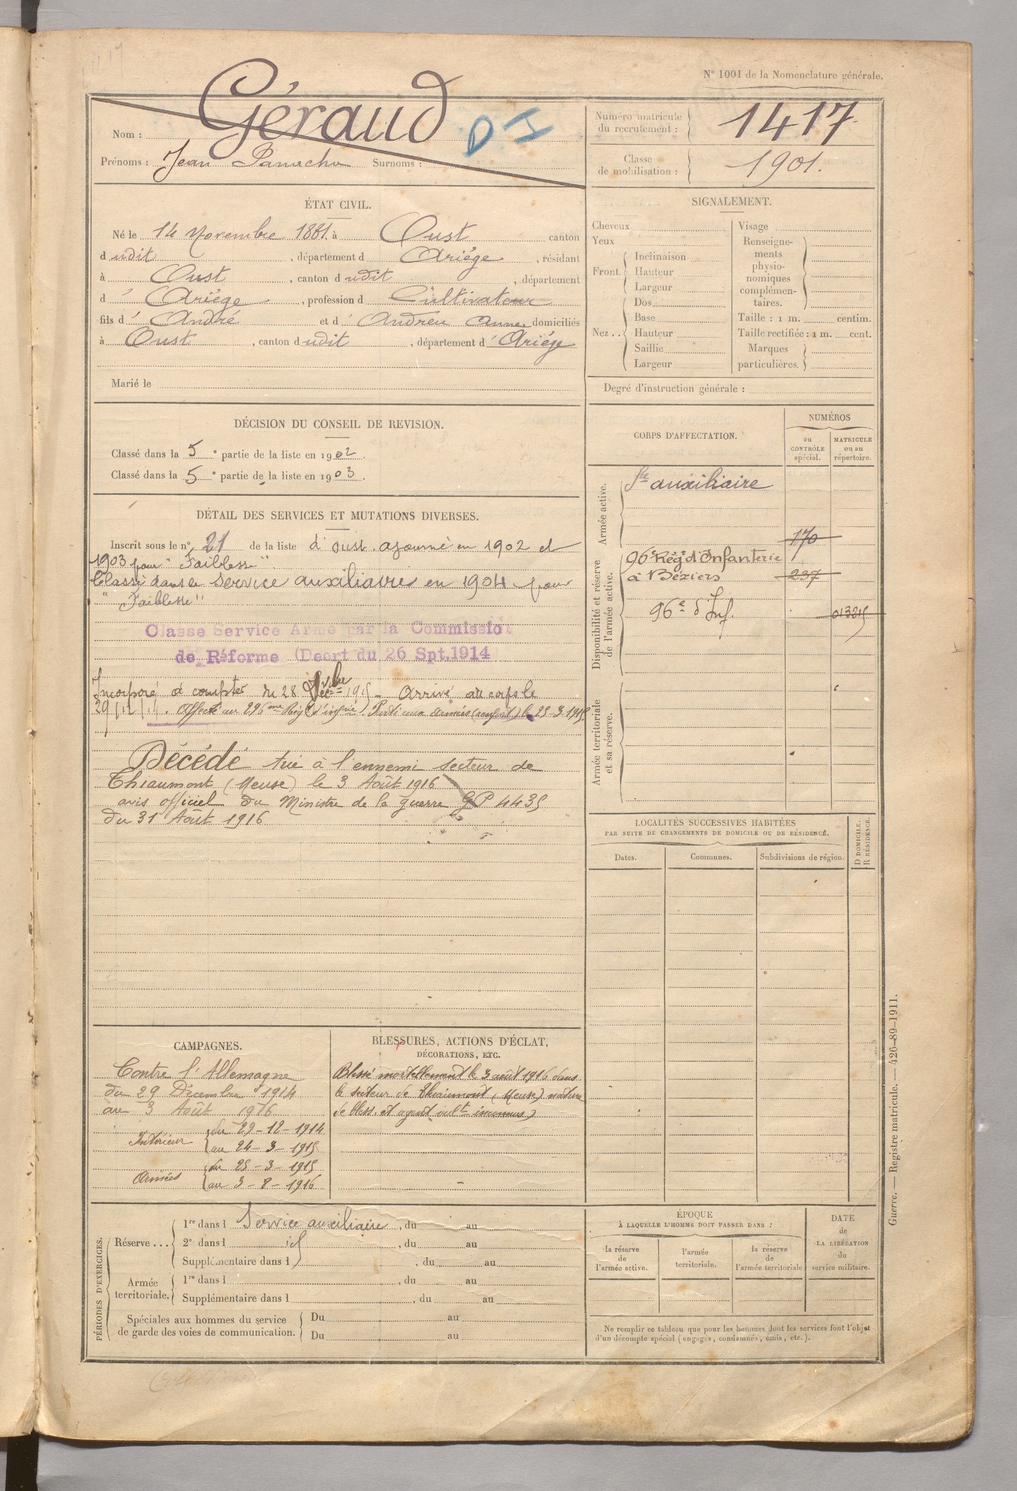 N° 1001 de la Nomenclature générale.
Géraud
D I
Nom :
Prénoms : Jean Surnoms :
Numéro matricule du recrutement : 1417
Classe de mobilisation : 1901.
ÉTAT CIVIL.
Né le 14 Novembre 1881 à Oust canton
d udit , département d Ariège , résidant
à Oust , canton d udit , département
d' Ariège , profession d Cultivateur
fils d' André et d' Andreu Anne domiciliés
à Oust , canton d udit , département d' Ariège
Marié le
SIGNALEMENT.
Cheveux
Yeux
Front. Inclinaison
Hauteur
Largeur
Nez... Dos
Base
Hauteur
Saillie
Largeur
Visage
Renseigne-
ments
physio-
nomiques
complémen-
taires.
Taille : 1 m. centim.
Taille rectifiée : 1 m. cent.
Marques
particulières.
Degré d'instruction générale :
DÉCISION DU CONSEIL DE REVISION.
Classé dans la 5 e partie de la liste en 1902.
Classé dans la 5 e partie de la liste en 1903.
DÉTAIL DES SERVICES ET MUTATIONS DIVERSES.
Inscrit sous le n° 21 de la liste d'Oust. ajourné en 1902 et
1903 pour "Faiblesse".
Classé dans le Service auxiliaire en 1904 pour
"Faiblesse"
Classe Service Armé par la Commissio
de Réforme (Decrt du 26 Spt.1914
Incorporé à compter du 28 Arrivé au corps le
29/12/14. Affecté au 296me Rég. d'infrie. Parti aux armées (renfort) le 25-3-1915
Décédé tué à l'ennemi secteur de
Thiaumont (Meuse) le 3 Août 1916
avis officiel du Ministre de la guerre GP 4435
du 31 Août 1916
CORPS D'AFFECTATION.
NUMÉROS
au CONTRÔLE spécial.
MATRICULE ou au répertoire.
Armée active.
Sce auxiliaire
170
Disponibilité et réserve de l'armée active.
96e Rég d'Infanterie
à Béziers 237
96e d'Inf.
Armée territoriale et sa réserve.
LOCALITÉS SUCCESSIVES HABITÉES
PAR SUITE DE CHANGEMENTS DE DOMICILE OU DE RÉSIDENCE.
Dates.
Communes.
Subdivisions de région.
D. DOMICILE.
R. RÉSIDENCE.
CAMPAGNES.
Contre l'Allemagne
du 29 Décembre 1914
au 3 Août 1916
Intérieur du 29-12-1914
au 24-3-1915
Armées du 25-3-1915
au 3-8-1916
BLESSURES, ACTIONS D'ÉCLAT,
DÉCORATIONS, ETC.
Blessé mortellement le 3 août 1916 dans
le secteur de Thiaumont (Meuse) nature
de bless. et agent vult inconnus)
PÉRIODES D'EXERCICES.
Réserve...
1re dans l Service auxiliaire , du au
2e dans l id , du au
Supplémentaire dans l , du au
Armée territoriale.
1re dans l , du au
Supplémentaire dans l , du au
Spéciales aux hommes du service
de garde des voies de communication.
Du au
Du au
ÉPOQUE
À LAQUELLE L'HOMME DOIT PASSER DANS :
la réserve de l'armée active.
l'armée territoriale.
la réserve de l'armée territoriale
DATE DE LA LIBÉRATION du service militaire.
Ne remplir ce tableau que pour les hommes dont les services font l'objet
d'un décompte spécial (engagés, condamnés, omis, etc.).
Guerre. — Registre matricule. — 426-89-1911.